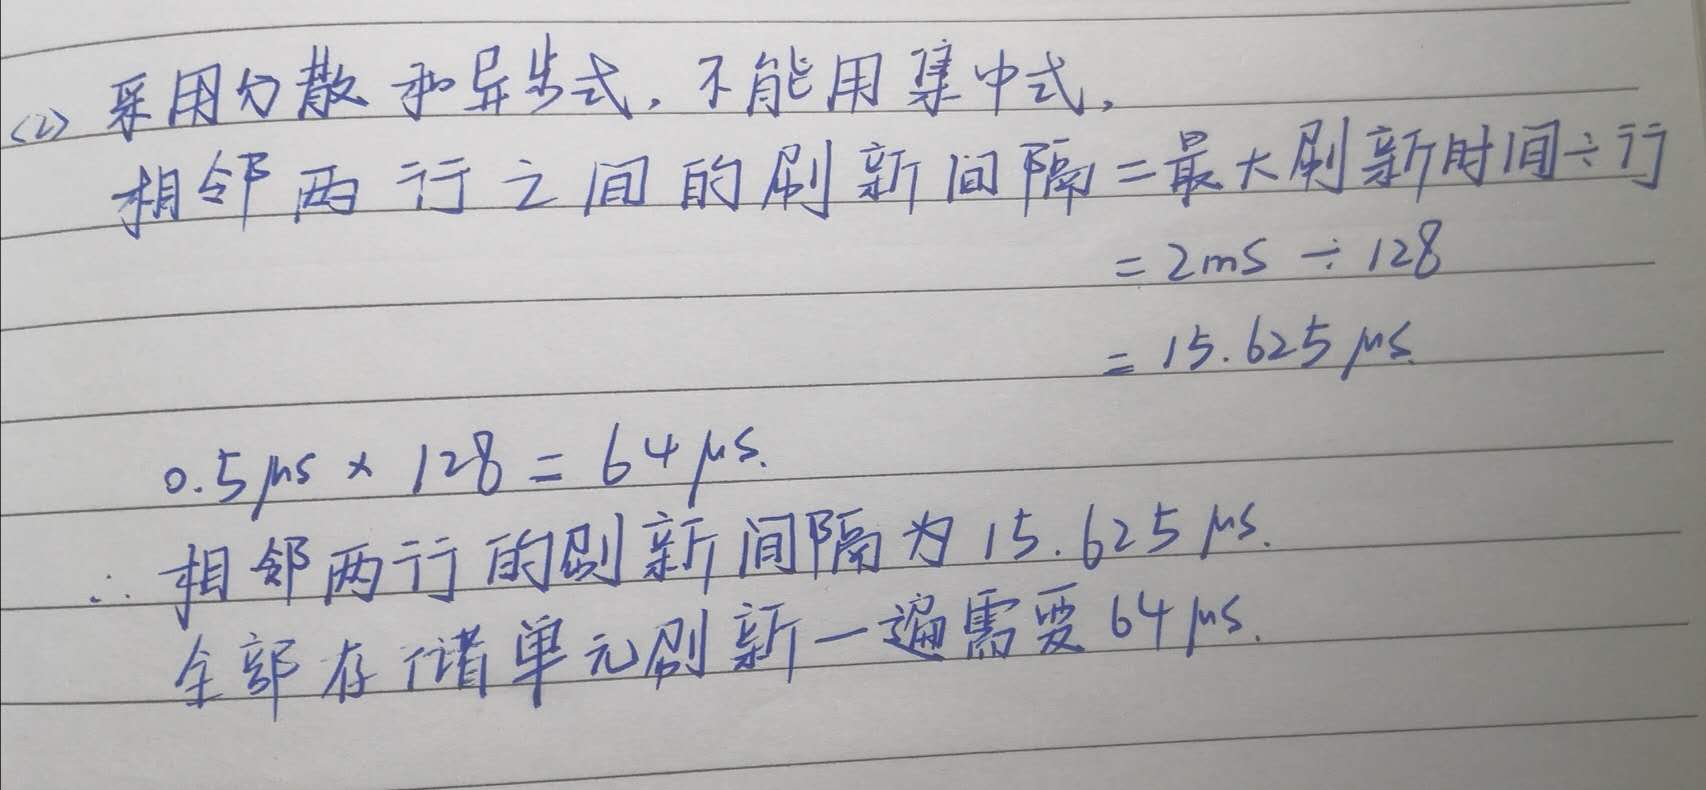 (2) 采用分散和异步式,不能用集中式,
相邻两行之间的刷新间隔=最大刷新时间÷行
=2mS÷128
=15.625μs.
0.5μs×128=64μs.
∴相邻两行的刷新间隔为15.625μs.
全部存储单元刷新一遍需要64μs.